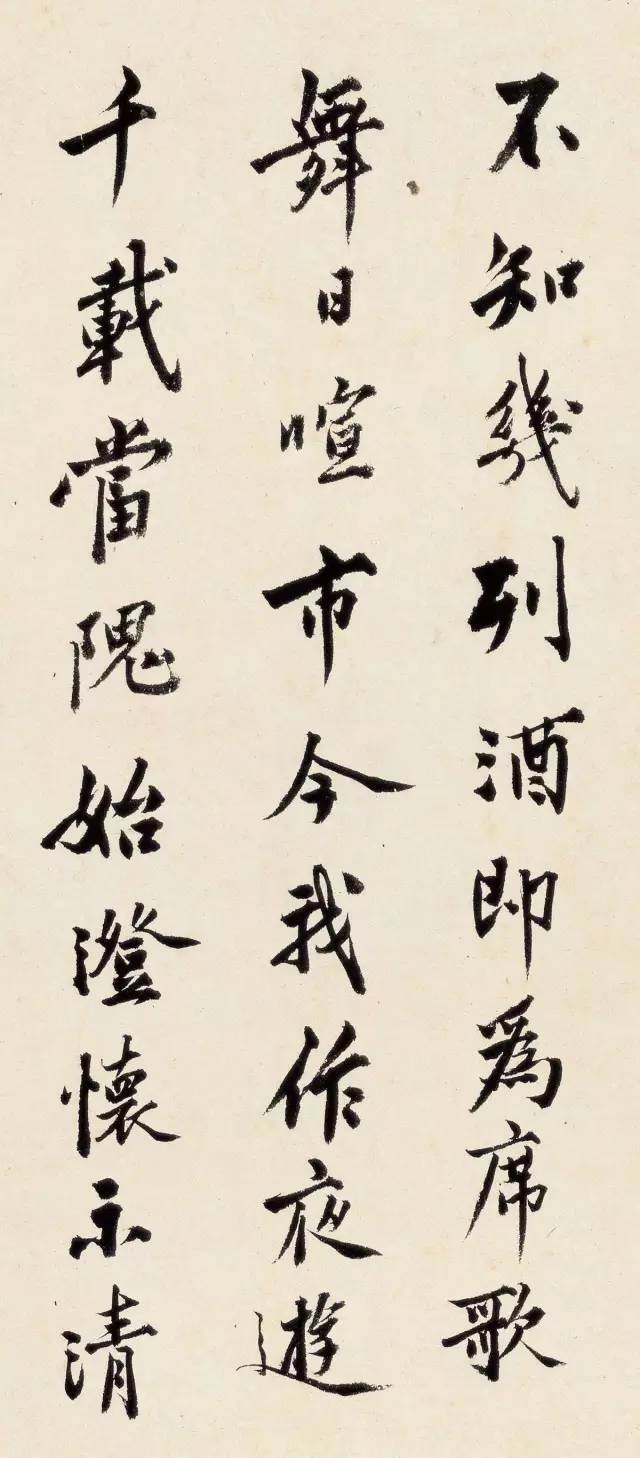 不知幾列酒即為席歌
舞日喧市今我作夜遊
千載當隗始澄懷示清